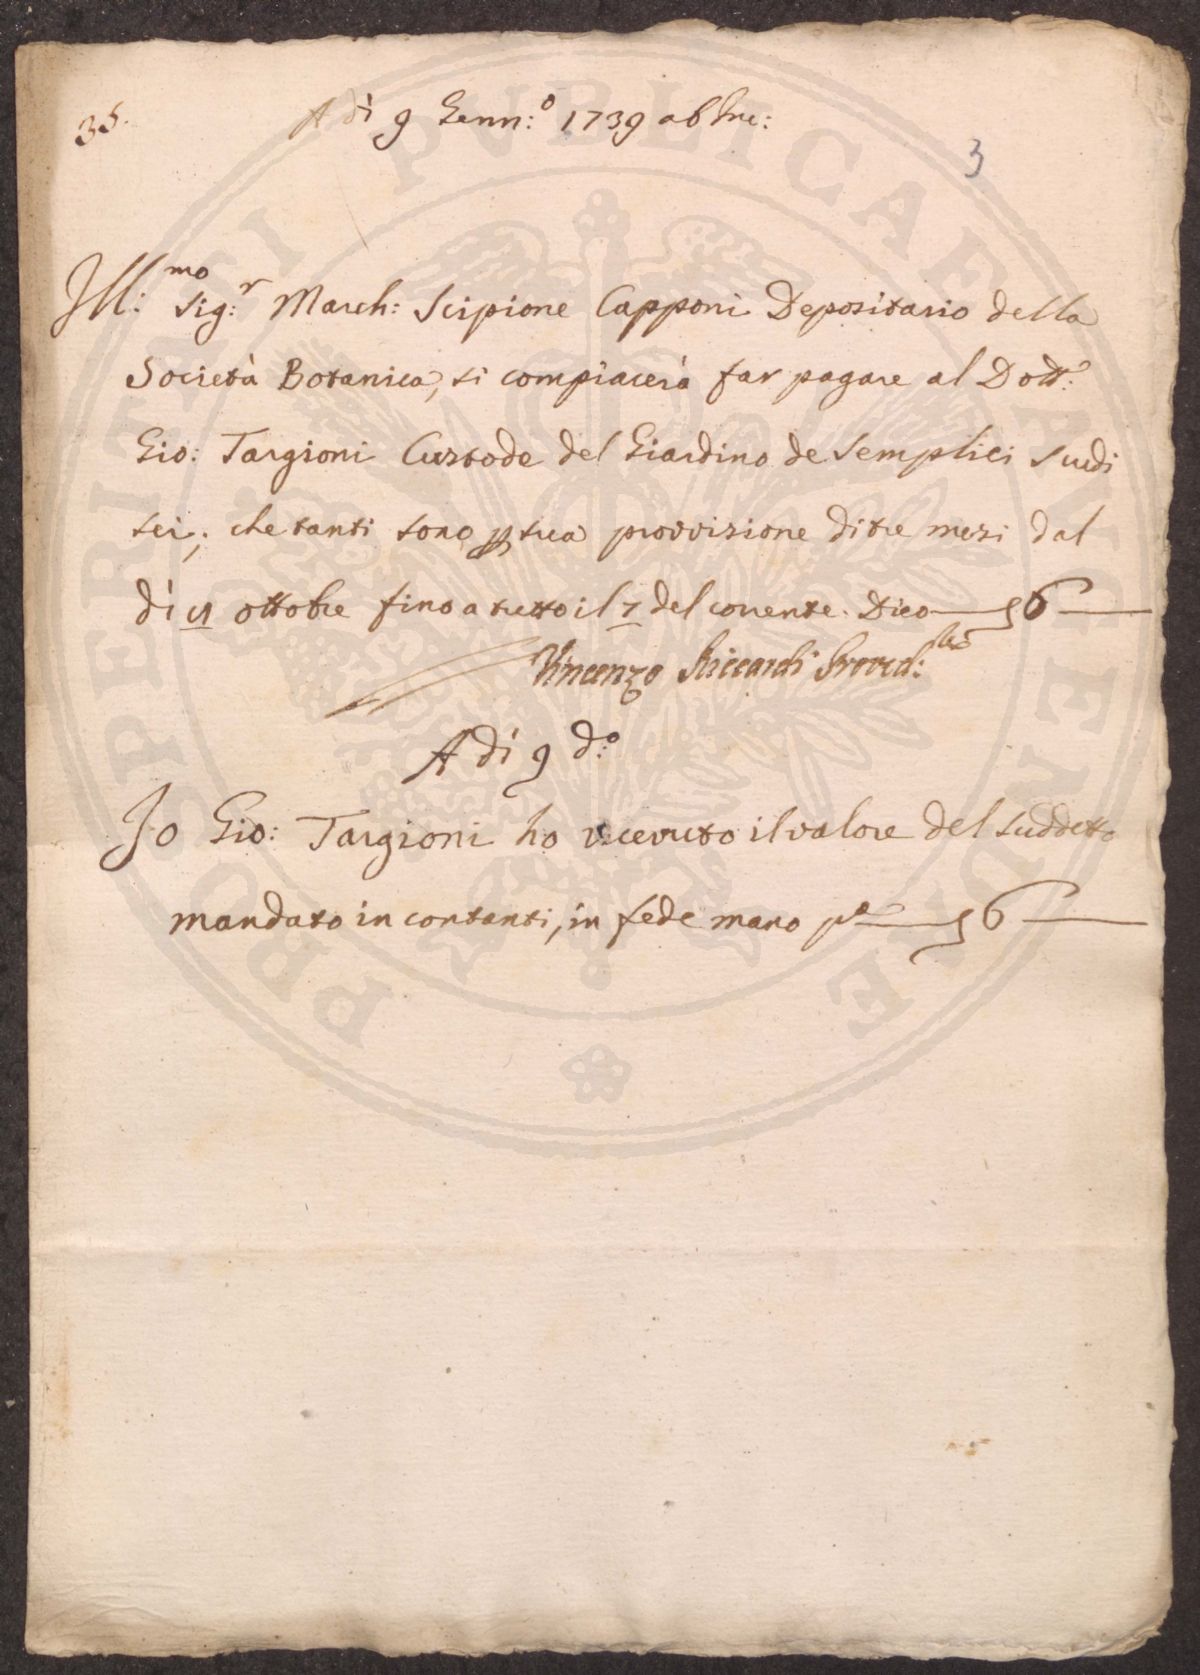 35.
A dì 9 Genn:º 1739 ab Inc:
3
Ill:mo Sig:r March: Scipione Capponi Depositario della
Società Botanica, si compiacerà far pagare al Dott:
Gio: Targioni Custode del Giardino de Semplici Scudi
sei; che tanti sono p sua provvisione di tre mesi dal
dì ottobre fino a tutto il 7 del corrente. Dico 6
Vincenzo Riccardi Proved:
A dì 9 d:º
Io Gio: Targioni ho ricevuto il valore del suddetto
mandato in contanti, in fede mano pª 6
PROSPERITATI PVBLICAE AVGENDAE